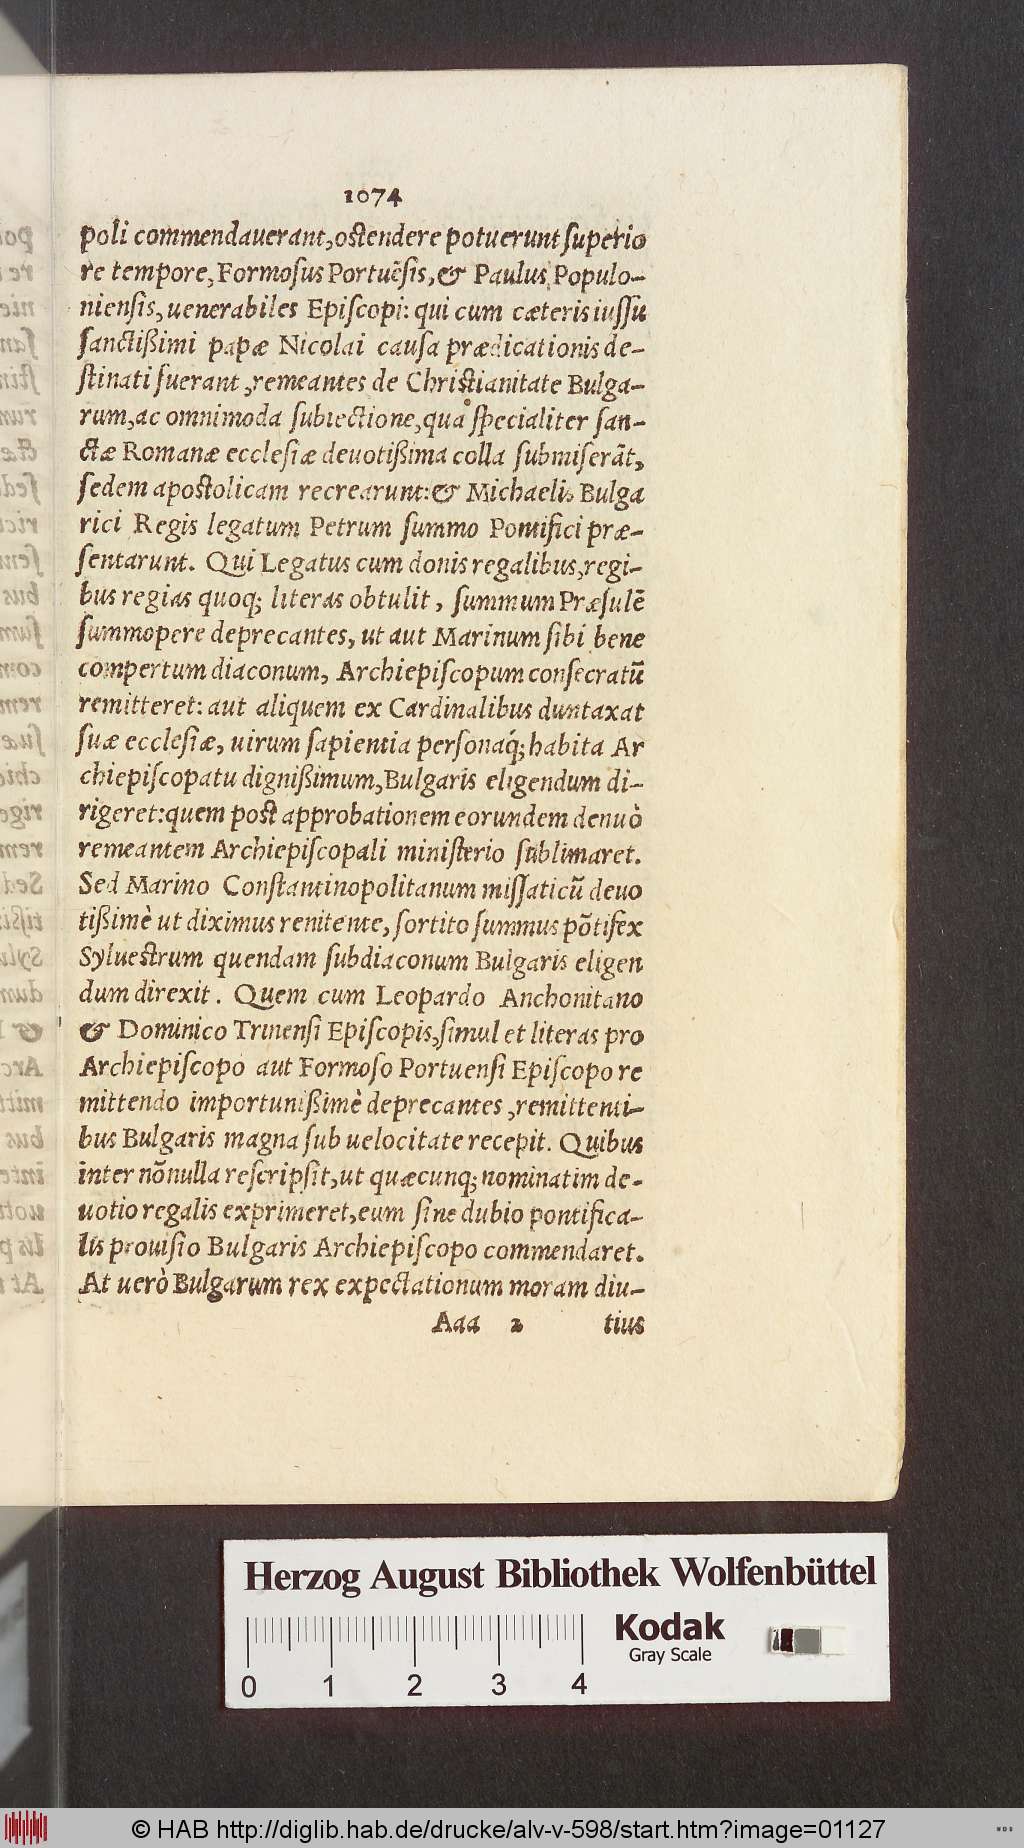 1074
poli commendauerant, ostendere potuerunt superio
re tempore, Formosus Portuēsis, & Paulus Populo-
niensis, uenerabiles Episcopi: qui cum cæteris iussu
sanctißimi papæ Nicolai causa prædicationis de-
stinati fuerant, remeantes de Christianitate Bulga-
rum, ac omnimoda subiectione, qua specialiter san-
ctæ Romanæ ecclesiæ deuotißima colla submiserāt,
sedem apostolicam recrearunt: & Michaelis Bulga
rici Regis legatum Petrum summo Pontifici præ-
sentarunt. Qui Legatus cum donis regalibus, regi-
bus regias quoq; literas obtulit, summum Præsulē
summopere deprecantes, ut aut Marinum sibi bene
compertum diaconum, Archiepiscopum consecratū
remitteret: aut aliquem ex Cardinalibus duntaxat
suæ ecclesiæ, uirum sapientia personaq́; habita Ar
chiepiscopatu dignißimum, Bulgaris eligendum di-
rigeret: quem post approbationem eorundem denuò
remeantem Archiepiscopali ministerio sublimaret.
Sed Marino Constantinopolitanum missaticū deuo
tißimè ut diximus renitente, sortito summus pōtifex
Syluestrum quendam subdiaconum Bulgaris eligen
dum direxit. Quem cum Leopardo Anchonitano
& Dominico Trinensi Episcopis, simul et literas pro
Archiepiscopo aut Formoso Portuensi Episcopo re
mittendo importunißimè deprecantes, remittenti-
bus Bulgaris magna sub uelocitate recepit. Quibus
inter nōnulla rescripsit, ut quæcunq; nominatim de-
uotio regalis exprimeret, eum sine dubio pontifica-
lis prouisio Bulgaris Archiepiscopo commendaret.
At uerò Bulgarum rex expectationum moram diu-
Aaa 2 tius
Herzog August Bibliothek Wolfenbüttel
Kodak
Gray Scale
0 1 2 3 4
© HAB http://diglib.hab.de/drucke/alv-v-598/start.htm?image=01127